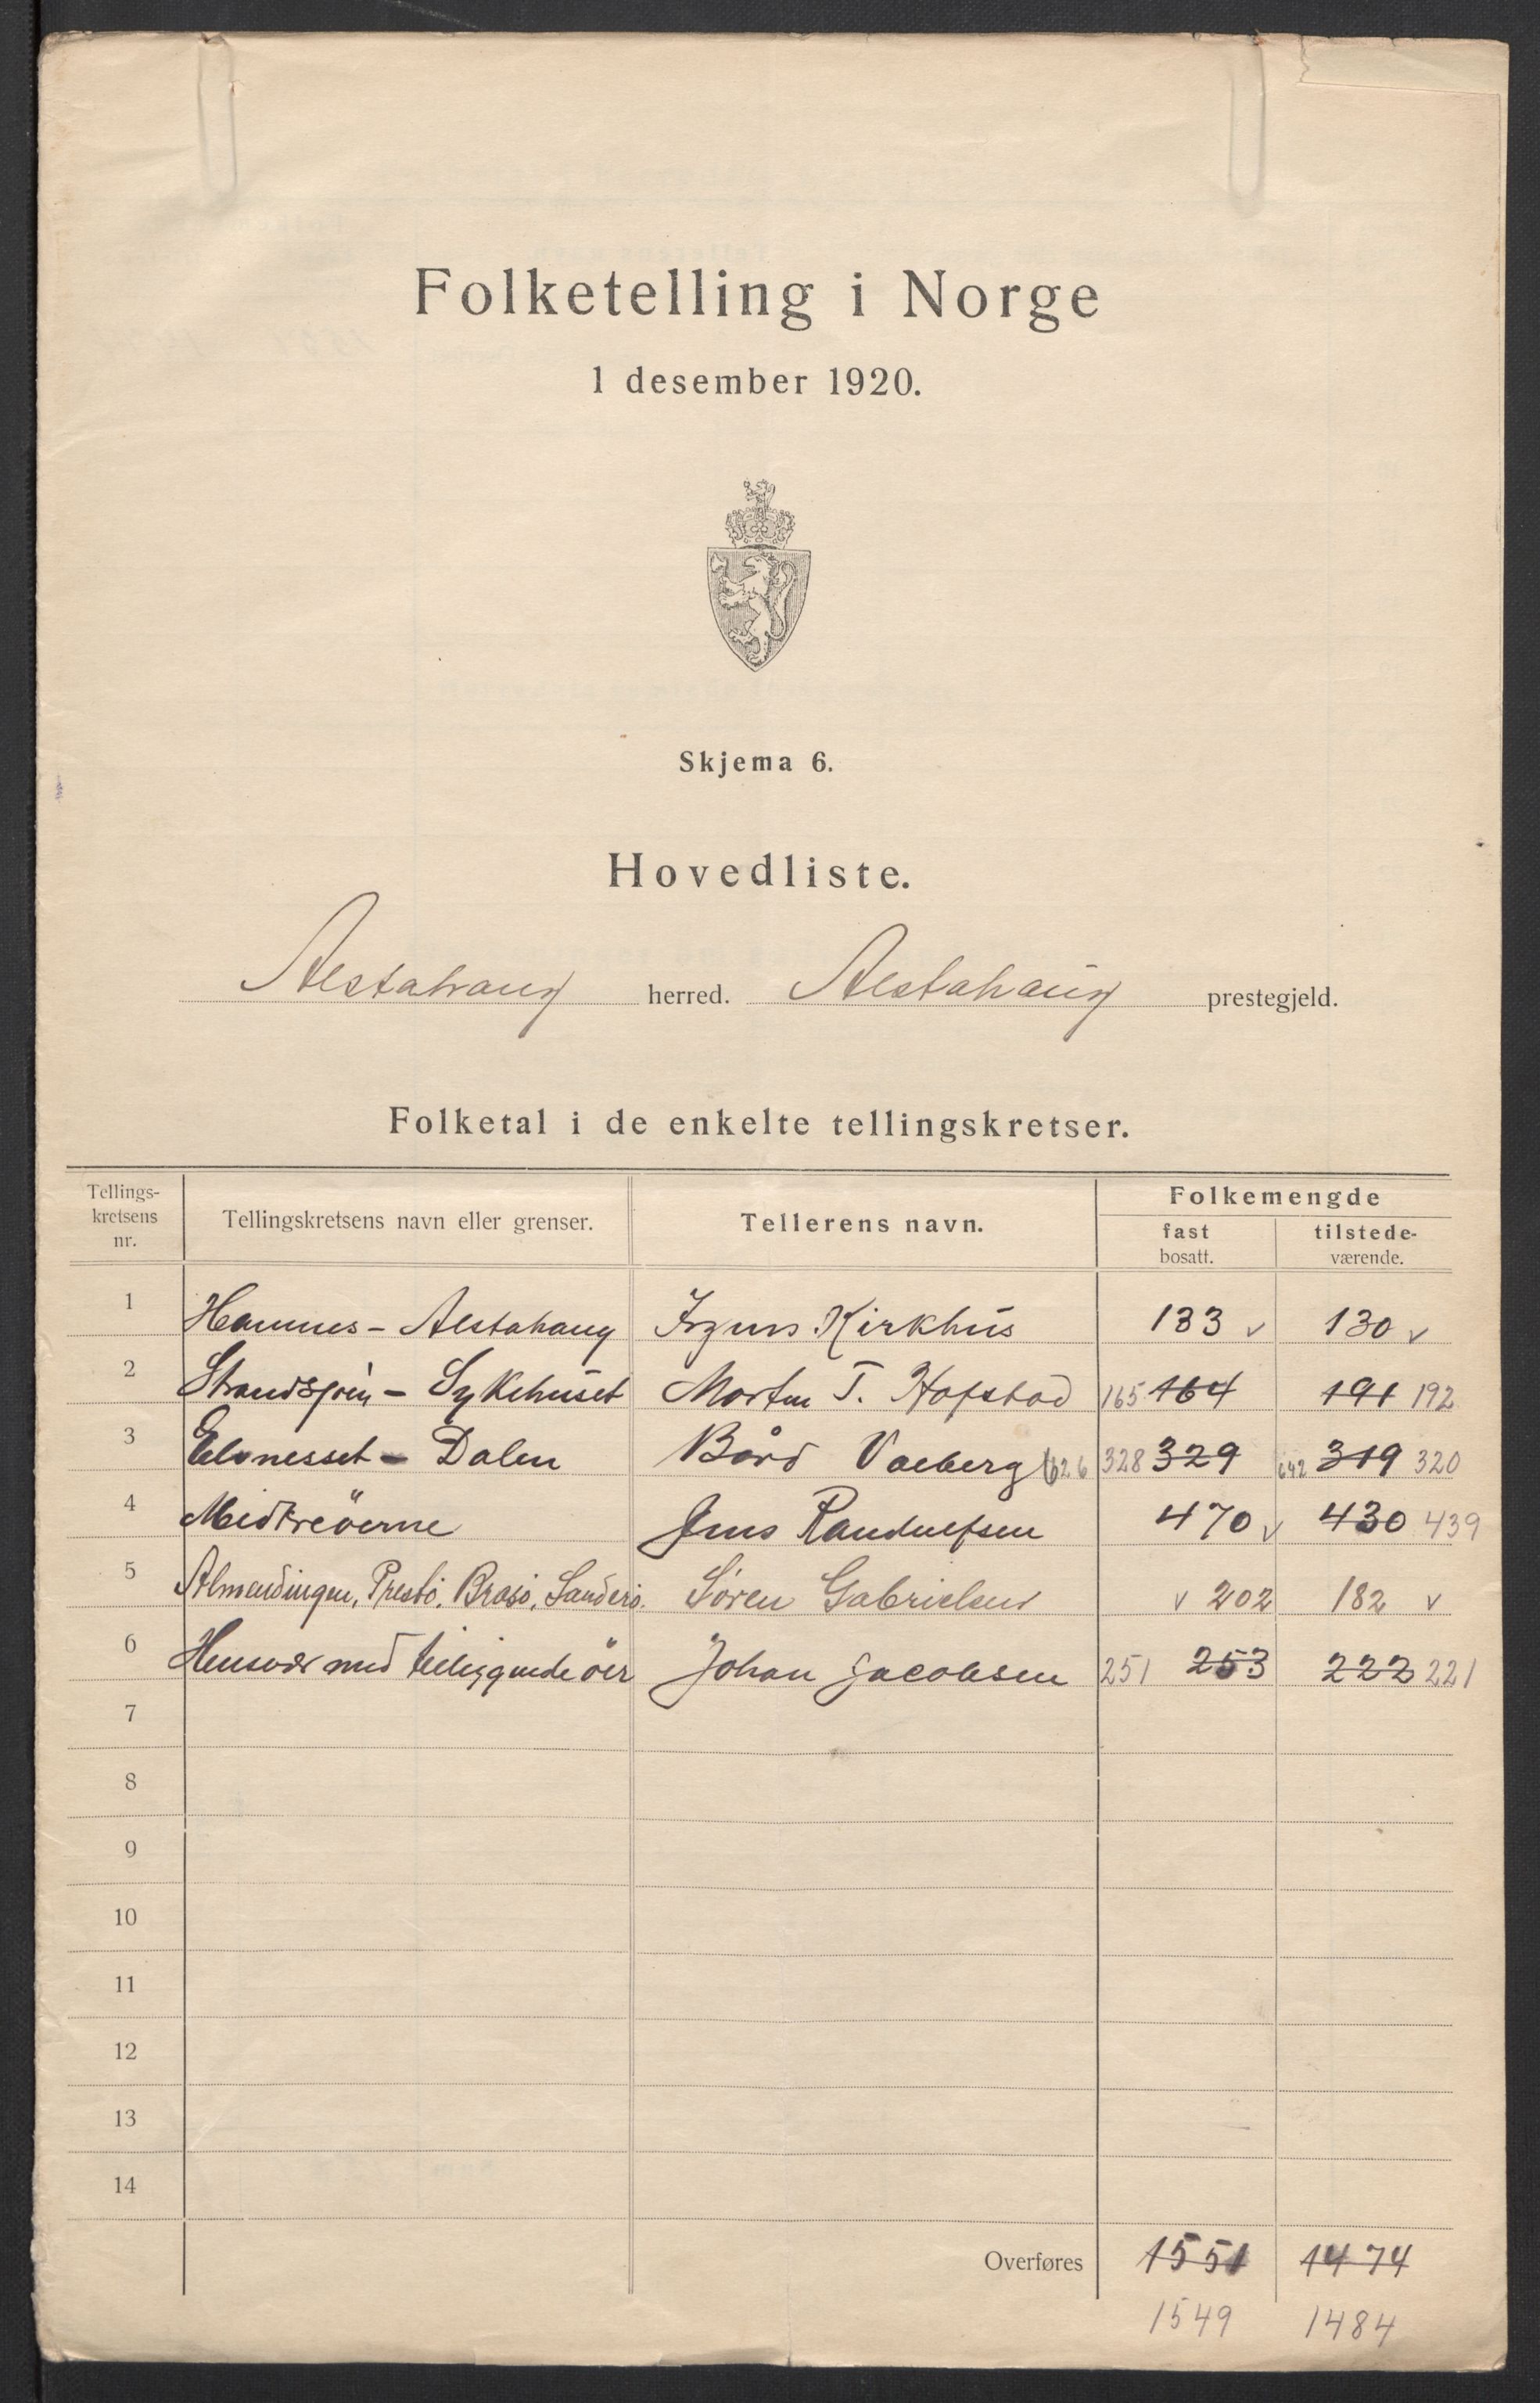 Folketelling i Norge
1 desember 1920.
Skjema 6.
Hovedliste.
Alstahaug herred. Alstahaug prestegjeld.
Folketal i de enkelte tellingskretser.
Tellings-kretsens nr. Tellingskretsens navn eller grenser. Tellerens navn. Folkemengde
fast bosatt. tilstede-værende.
1 Hamnes - Alstahaug Kirkhus 133 v 130 v
2 - Sykehuset Morten T. Hofstad 165 164 191 192
3 Dalen Bård 626 328 329 642 319 320
4 Midtreöerne Jens Randulfsen 470 v 430 439
5 Almendingen, Prestö, Brasö, Sanderö. Sören Gabrielsen v 202 182 v
6 med beliggende öer Johan Jacobsen 251 253 222 221
7
8
9
10
11
12
13
14
Overføres 1551 1474
1549 1484